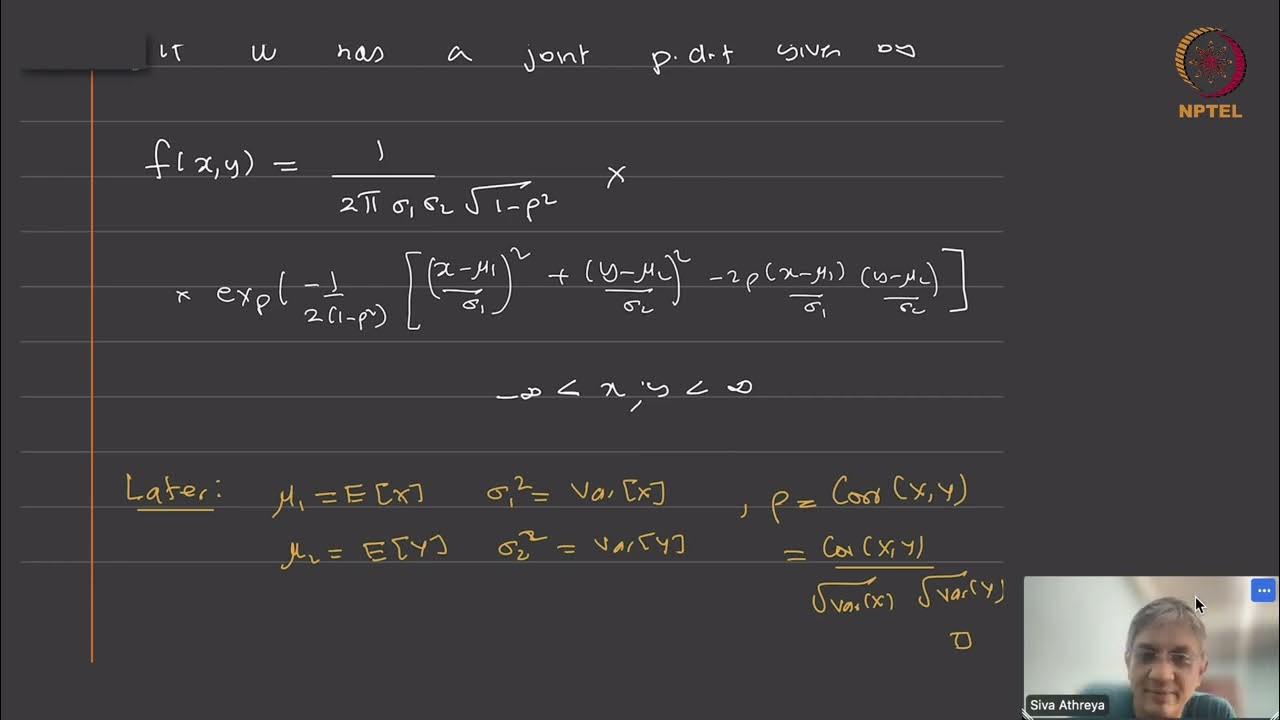 if W has a joint p.d.f given by
NPTEL
f(x,y) = 1 / 2π σ₁ σ₂ √1-ρ² ×
× exp( -1 / 2(1-ρ²) [ (x-μ₁ / σ₁)² + (y-μ₂ / σ₂)² - 2ρ (x-μ₁) / σ₁ (y-μ₂) / σ₂ ]
-∞ < x, y < ∞
Later: μ₁ = E[X] σ₁² = Var[X] , ρ = Corr(X,Y)
μ₂ = E[Y] σ₂² = Var[Y] = Cov(X,Y) / √Var(X) √Var(Y)
Siva Athreya